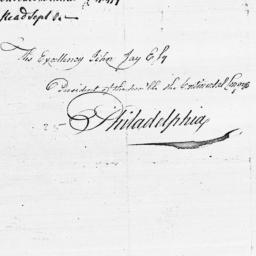 Read Sept 8
His Excellency John Jay Esq
President of the honble the Continental Congress
Philadelphia